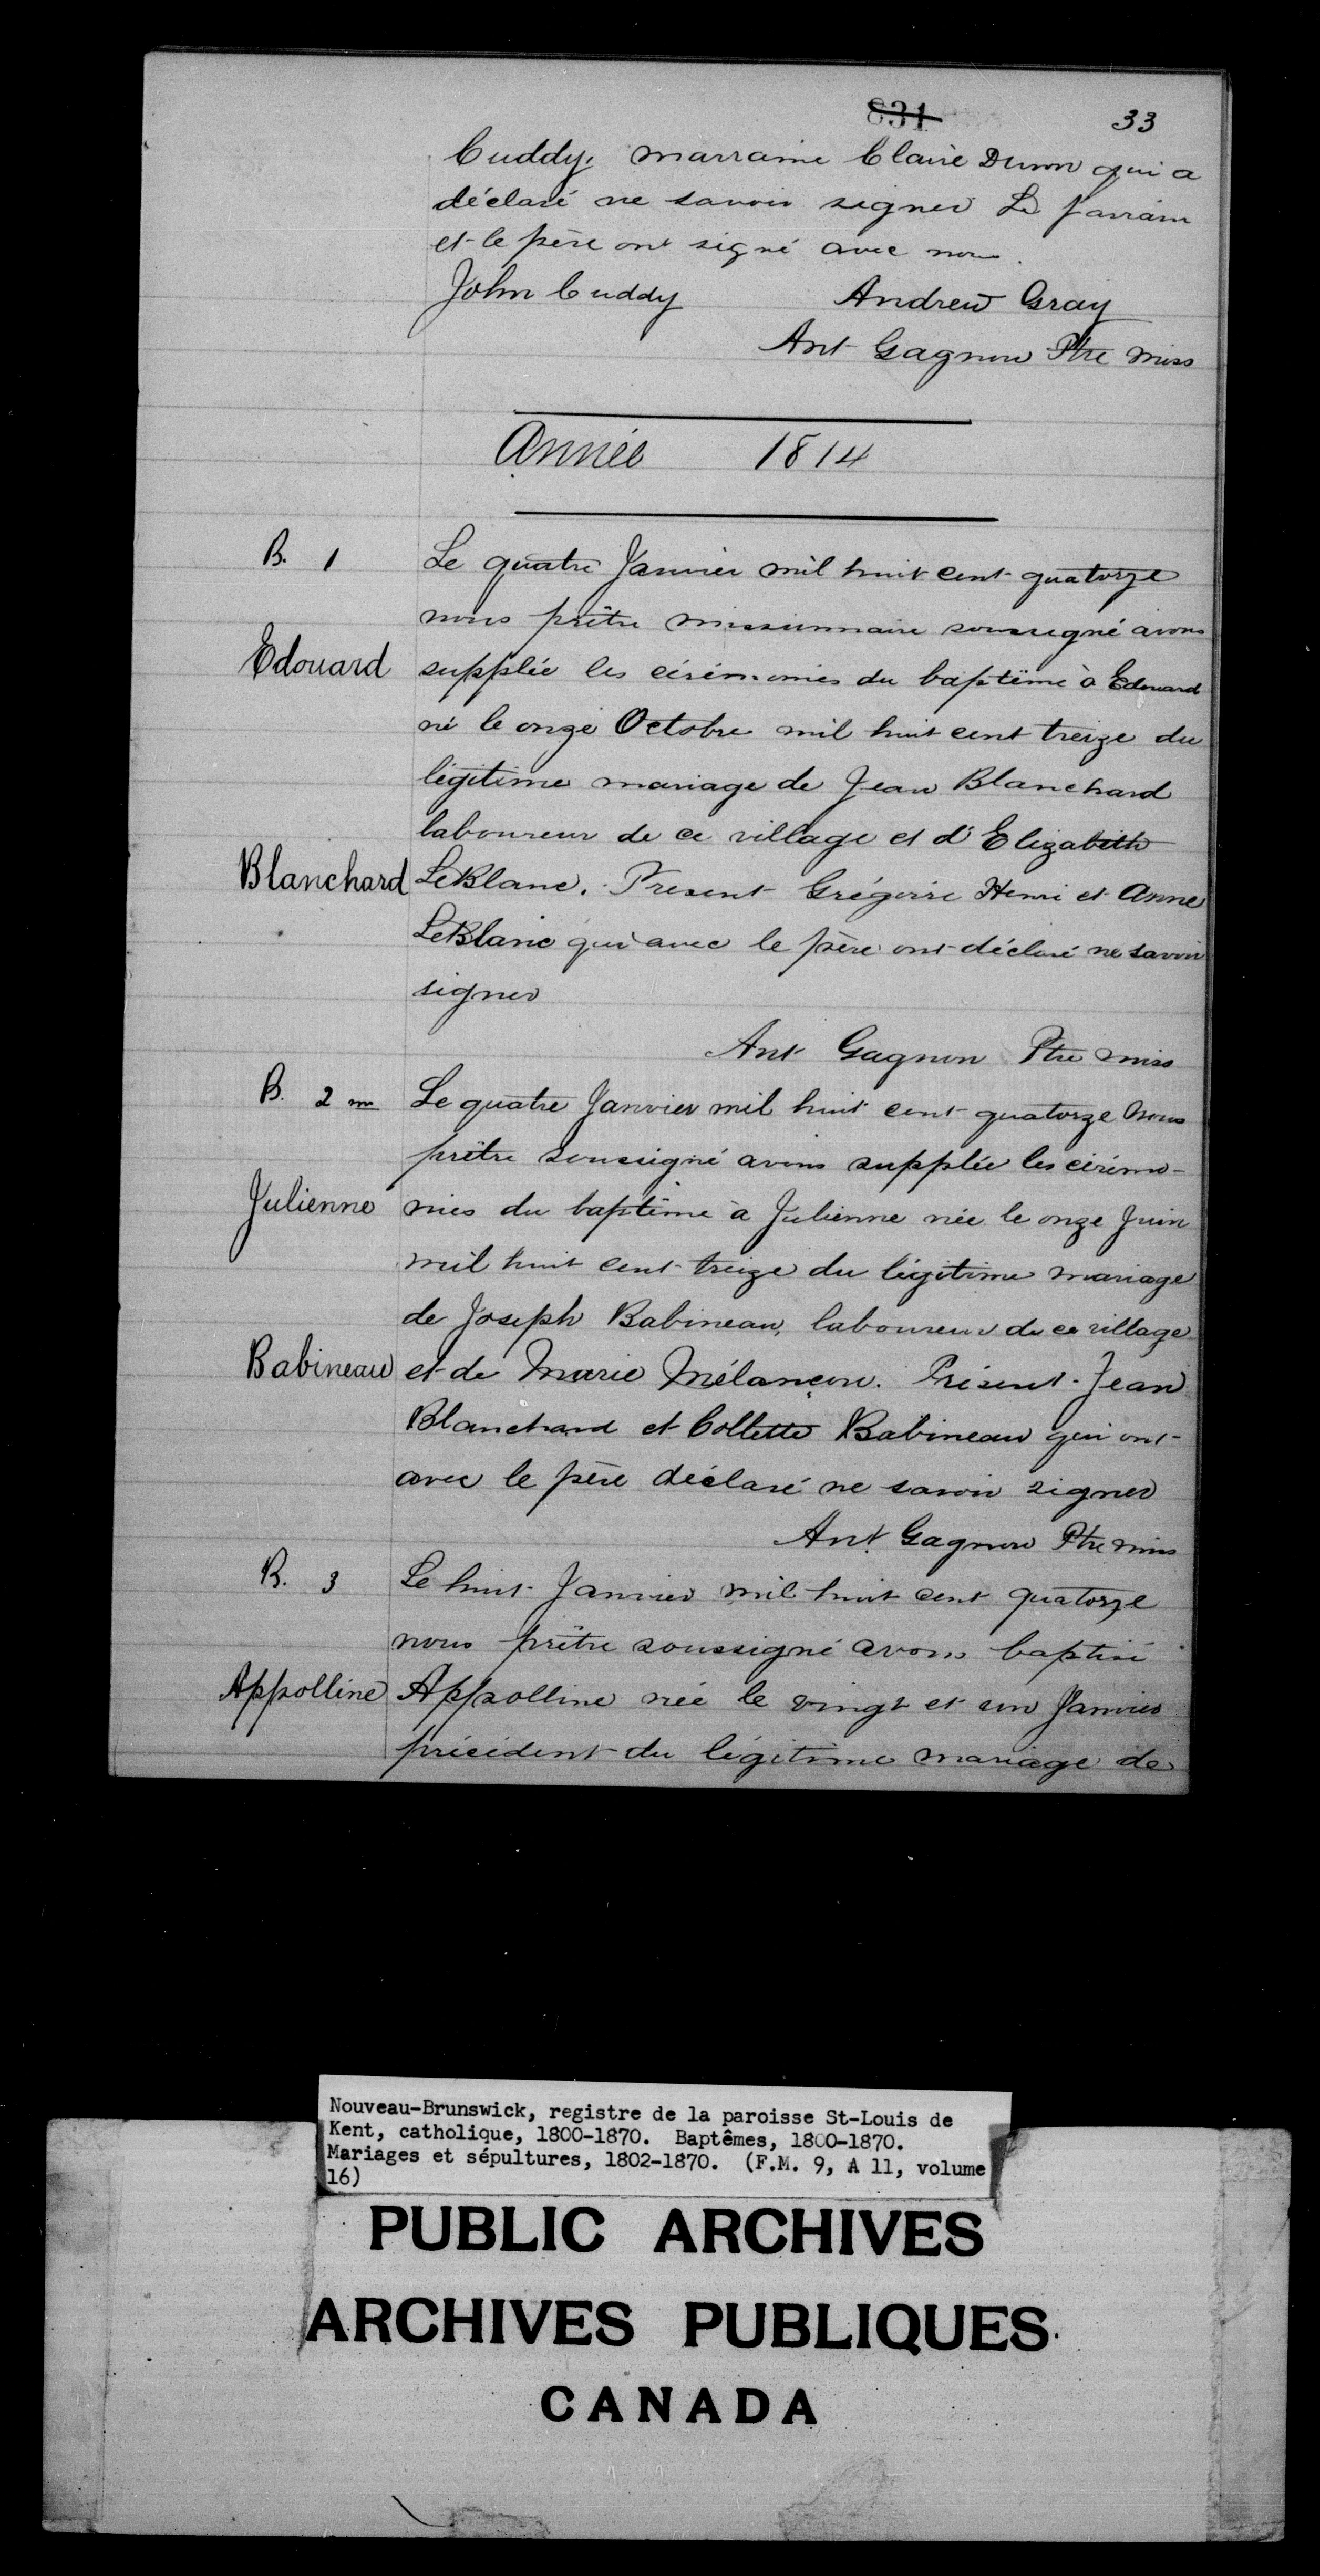 831 33
Cuddy, marraine Claire Dunn qui a
déclaré ne savoir signer Le parrain
et le père ont signé avec nous.
John Cuddy Andrew Gray
Ant Gagnon Ptre miss
Année 1814
B. 1 Le quatre Janvier mil huit cent quatorze
nous prêtre missionnaire soussigné avons
Edouard supplée les cérémonies du baptême à Edouard
né le onze Octobre mil huit cent treize du
légitime mariage de Jean Blanchard
laboureur de ce village et d'Elizabeth
Blanchard LeBlanc. Present Grégoire Henri et Anne
LeBlanc qui avec le père ont déclaré ne savoir
signer
Ant Gagnon Ptre miss
B. 2 m Le quatre Janvier mil huit cent quatorze nous
prêtre soussigné avons supplée les cérémo-
Julienne nies du baptême à Julienne née le onze Juin
mil huit cent treize du légitime mariage
de Joseph Babineau, laboureur de ce village
Babineau et de Marie Mélançon. Présent Jean
Blanchard et Collette Babineau qui ont
avec le père déclaré ne savoir signer
Ant. Gagnon Ptre miss
B. 3 Le huit Janvier mil huit cent quatorze
nous prêtre soussigné avons baptisé
Appolline Appolline née le vingt et un Janvier
précédent du légitime mariage de
Nouveau-Brunswick, registre de la paroisse St-Louis de
Kent, catholique, 1800-1870. Baptêmes, 1800-1870.
Mariages et sépultures, 1802-1870. (F.M. 9, A 11, volume
16)
PUBLIC ARCHIVES
ARCHIVES PUBLIQUES
CANADA